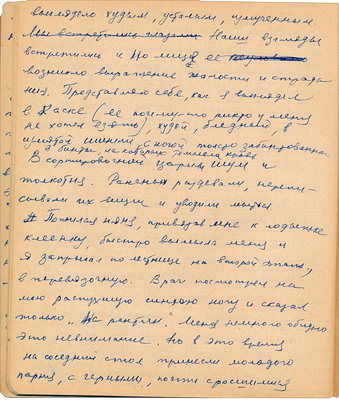 выглядело худым, усталым, измученным.
Наши взгляды
встретились и на лице её
возникло выражение жалости и страда
ния. Представляю себе, как я выглядел
в каске (её почему-то никто у меня
не хотел взять), худой, бледный, в
измятой шинели с ногой забинтованной
В сортировочной царили шум и
толкотня. Раненых раздевали, перепи-
сывали их вещи и уводили мыться
Пожилая няня, привязав мне к лодыжке
клеенку, быстро вымыла меня и
я запрыгал по лестнице на второй этаж,
в перевязочную. Врач посмотрел на
мою распухшую синюю ногу и сказал
только „На рентген." Меня немного обидело
это невнимание. Но в это время
на соседний стол принесли молодого
парня, с черными, почти сросшимися